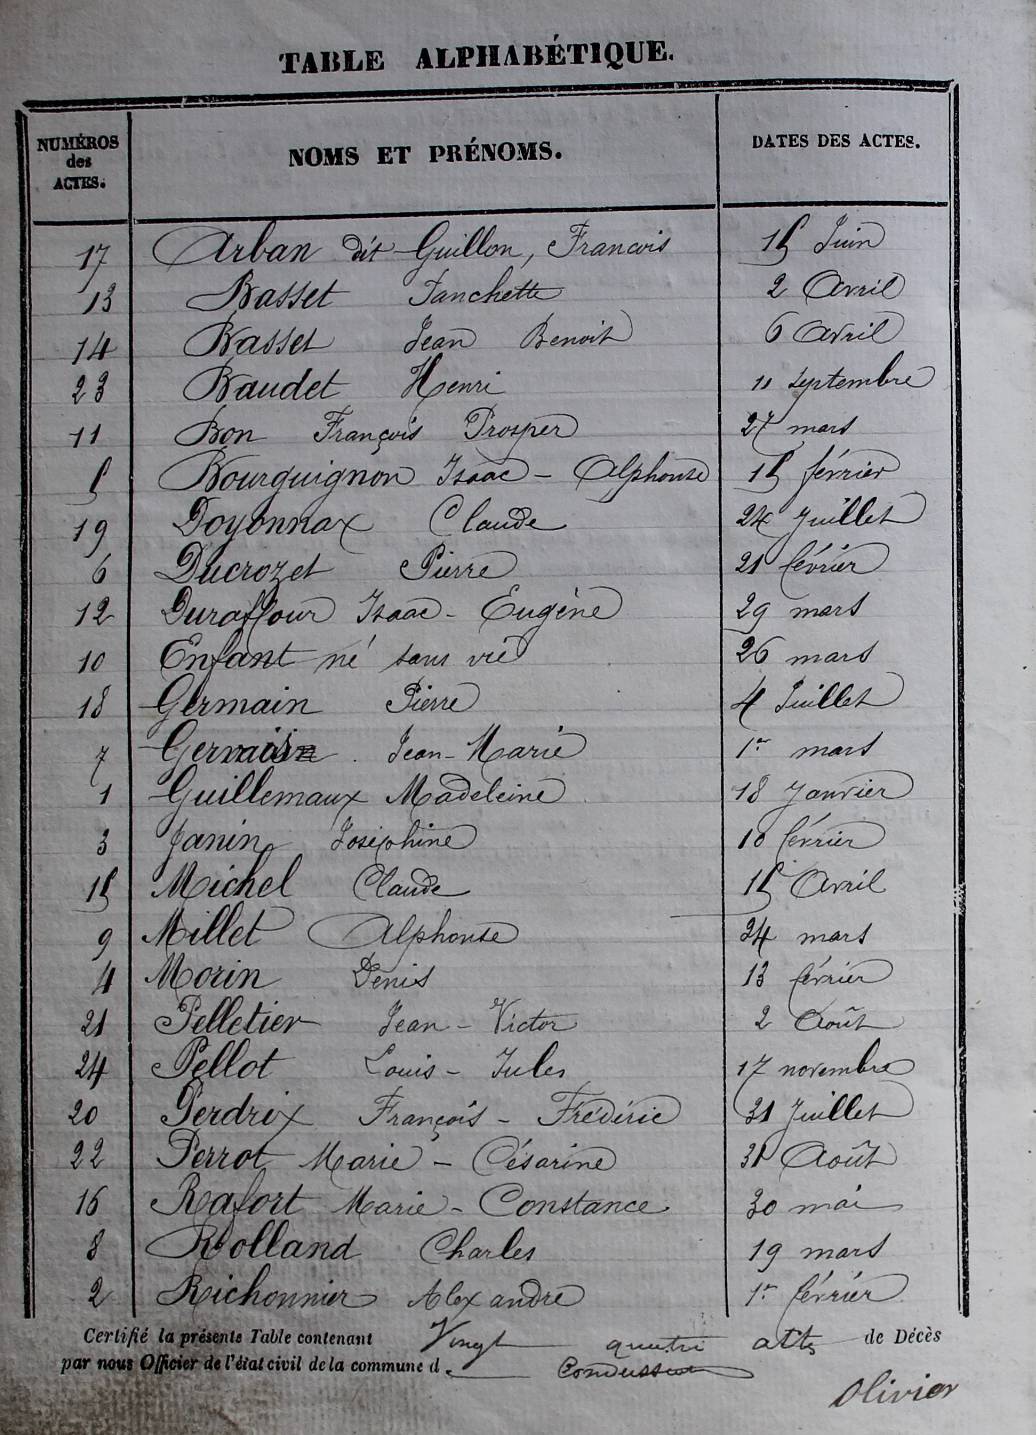 TABLE ALPHABÉTIQUE.
NUMÉROS des ACTES. NOMS ET PRÉNOMS. DATES DES ACTES.
17 Arban dit Guillon, Francois 15 Juin
13 Basset Fanchette 2 Avril
14 Basset Jean Benoit 6 Avril
23 Baudet Henri 11 Septembre
11 Bon François Prosper 27 mars
5 Bourguignon Isaac - Alphonse 15 février
19 Doyonnax Claude 24 Juillet
6 Ducrozet Pierre 21 février
12 Duraffour Isaac - Eugène 29 mars
10 Enfant né sans vie 26 mars
18 Germain Pierre 4 Juillet
7 Gervais Jean-Marie 1er mars
1 Guillemaux Madeleine 18 Janvier
3 Janin Joséphine 10 février
15 Michel Claude 15 Avril
9 Millet Alphonse 24 mars
4 Morin Denis 13 février
21 Pelletier Jean - Victor 2 Août
24 Pellot Louis - Jules 17 novembre
20 Perdrix François - Frédéric 31 Juillet
22 Perrot Marie - Césarine 31 Août
16 Rafort Marie - Constance 30 mai
8 Rolland Charles 19 mars
2 Richonnier Alexandre 1er février
Certifié la présente Table contenant Vingt quatre actes de Décès
par nous Officier de l'état civil de la commune d
Olivier